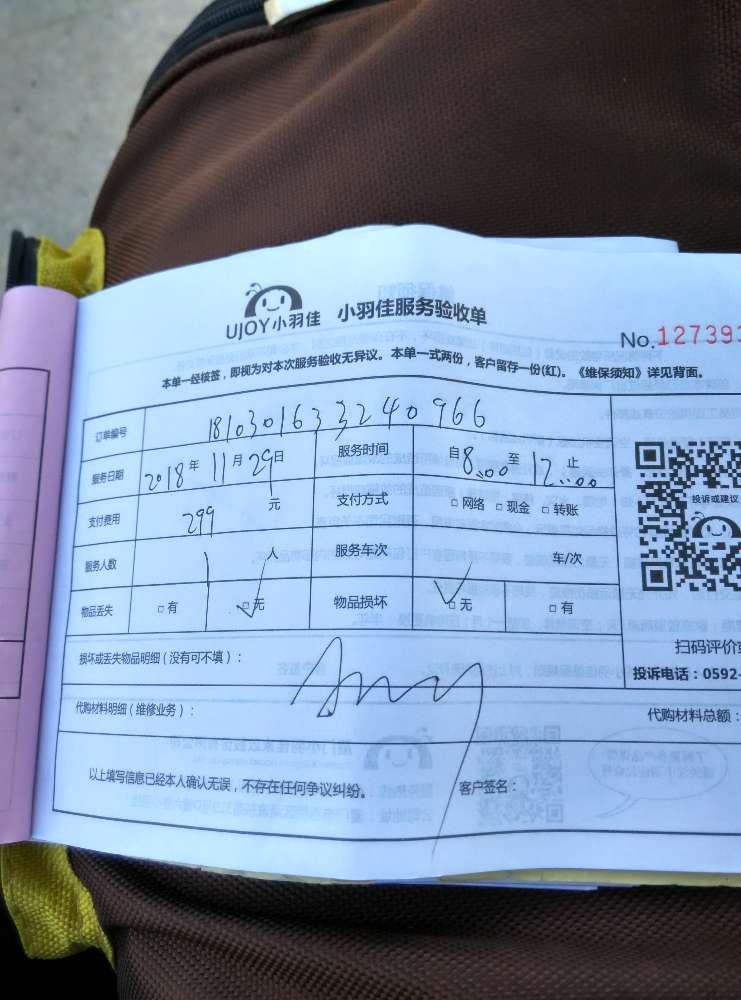 UJOY小羽佳 小羽佳服务验收单
No.127393
本单一经核签，即视为对本次服务验收无异议。本单一式两份，客户留存一份(红)。《维保须知》详见背面。
订单编号 1810301633240966
服务日期 2018年11月29日 服务时间 自8:00至12:00止
投诉或建议
支付费用 299元 支付方式 □网络 □现金 □转账
服务人数 1人 服务车次 车/次
物品丢失 □有 □无 物品损坏 □无 □有
扫码评价或
损坏或丢失物品明细（没有可不填）：
投诉电话：0592-
代购材料明细（维修业务）： 代购材料总额：
以上填写信息已经本人确认无误，不存在任何争议纠纷。 客户签名：